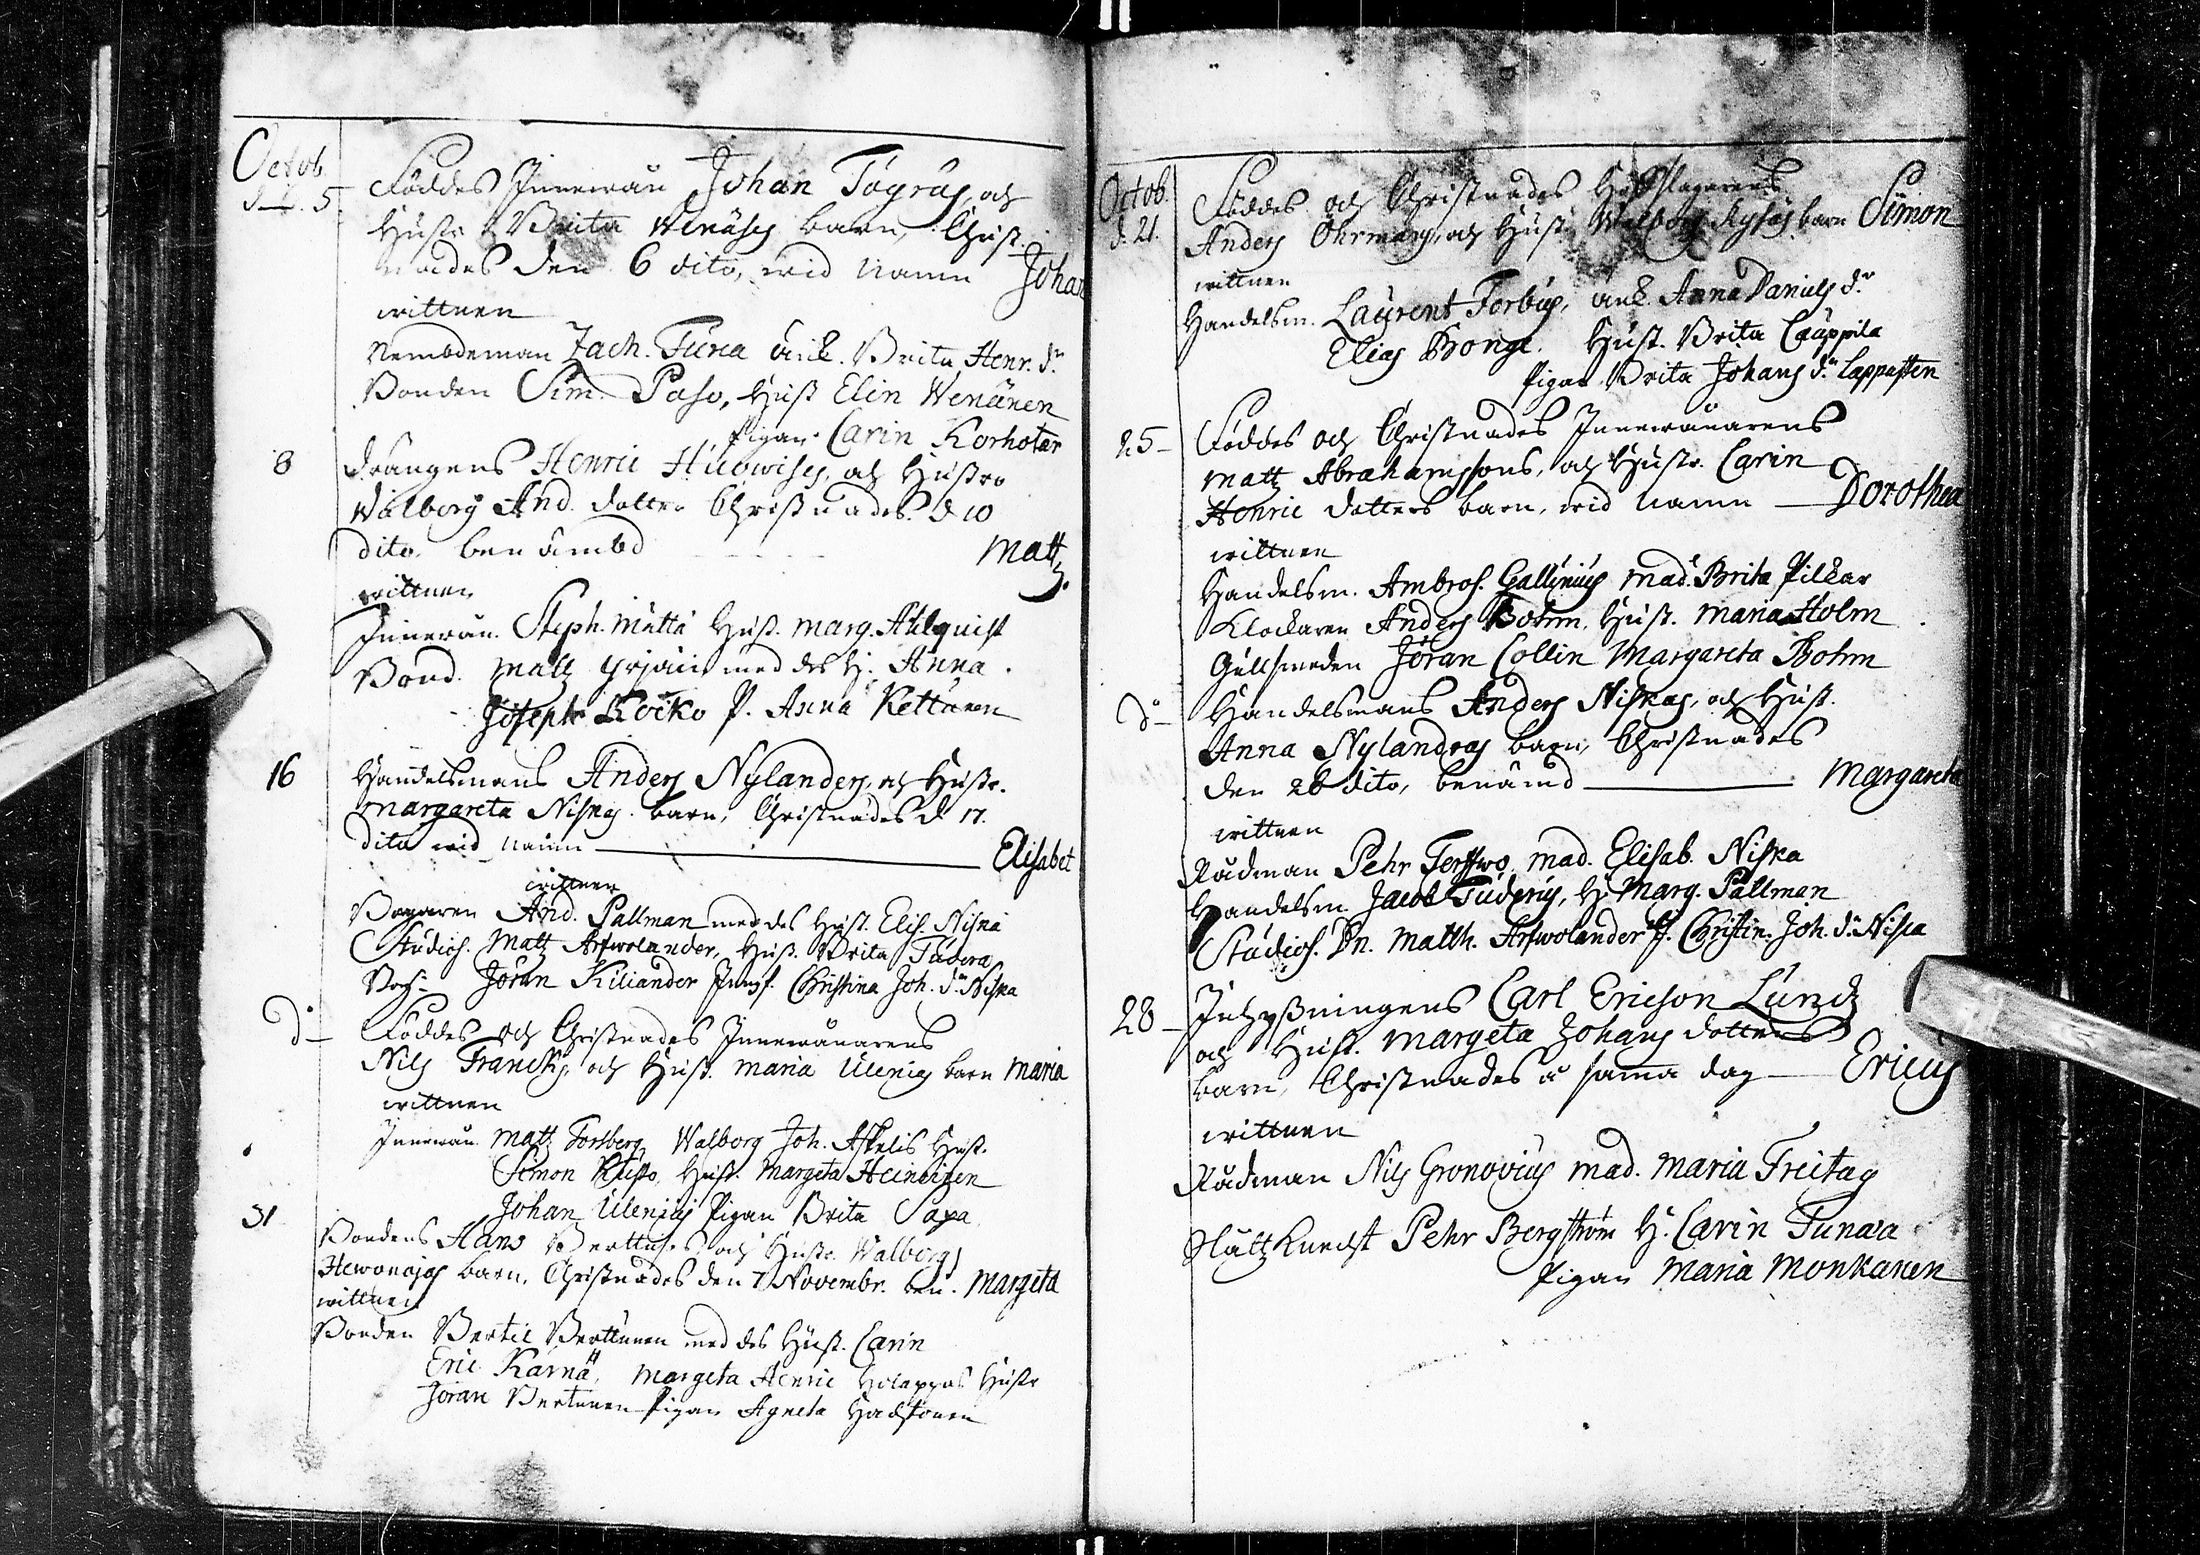 Octob.
d. 5. Föddes Innewån Johan Tögrus, och
Hustr Brita Wenäses barn, Christ
nades den 6 dito, wid namn Johan
wittnen
Nembdeman Zach. Turea änk. Brita Henr. dr
Bonden Sim. Paso, Hust Elin Wenänen
Pigan Carin Korhotar
8 Drängens Henric Huowises, och Hustro
Walborg And. dotter Christnades d 10
dito benämbd Matz.
wittnen
Innewån. Steph. Mättä Hust. Marg. Ahlquist
Bond. Matz Yrjäin med des H. Anna
Joseph Koiko P. Anna Kettunen
16 Handelsmans Anders Nylanders, och Hustr.
Margareta Niskas barn, Christnades d 17.
dito wid namn Elisabet
wittnen
Borgaren And. Pallman med des Hust. Elis. Niska
Studios. Matz Arfwolander, Hust. Brita Tudera
Joran Kiliander Jungf. Christina Joh. dr Niska
do Föddes och Christnades Innewånarens
Nils Francks, och Hust. Maria Ulenias barn Maria
wittnen
Innewån. Matz Forsberg, Walborg Joh. Askelis Hust.
Simon Husso, Hust. Margeta Heinoinen
Johan Ulenius Pigan Brita Saxa
31 Bondens Hans Berttuses och Hustr. Walborg
Hewonojas barn, Christnades den 7 Novembr. ben. Margeta
wittnen
Bonden Bertil Berttunen med des Hust. Carin
Eric Kärnä, Margeta Henric Holappas Hustr
Joran Bertunen Pigan Agneta
Octob.
d. 21. Föddes och Christnades Hofslagarens
Anders Öhrmans, och Hust. Walborg Rysäs barn Simon
wittnen
Handelsm. Laurent Forbus, änk. Anna Daniels dr
Elias Bonge. Hust. Brita Cauppila
Pigan Brita Johans dr Lappasten
25 Föddes och Christnades Innewånarens
Matz Abrahamssons, och Hustr. Carin
Henric dotters barn, wid namn Dorothea
wittnen
Handelsm. Ambros. Gallenius Mad. Brita Pilkar
Klockaren Anders Bohm, Hust. Maria Holm
Gullsmeden Jöran Collin Margareta Bohm
do Handelsmans Anders Niskas, och Hust.
Anna Nylandras barn, Christnades
den 26 dito, benämd Margareta
wittnen
Rådman Pehr Terfwo, Mad. Elisab. Niska
Handelsm. Jacob Tuderus, H. Marg. Pallman
Studios. Dn. Matth. Arfwolander J. Christin. Joh. dr Niska
28 Inhyßningens Carl Ericson Lundz
och Hust. Margeta Johans dotters
barn, Christnades å samma dag Ericus
wittnen
Rådman Nils Gronovius Mad. Maria Freitag
Slåttzknecht Pehr Bergström H. Carin Tunaa
Pigan Maria Monkanen